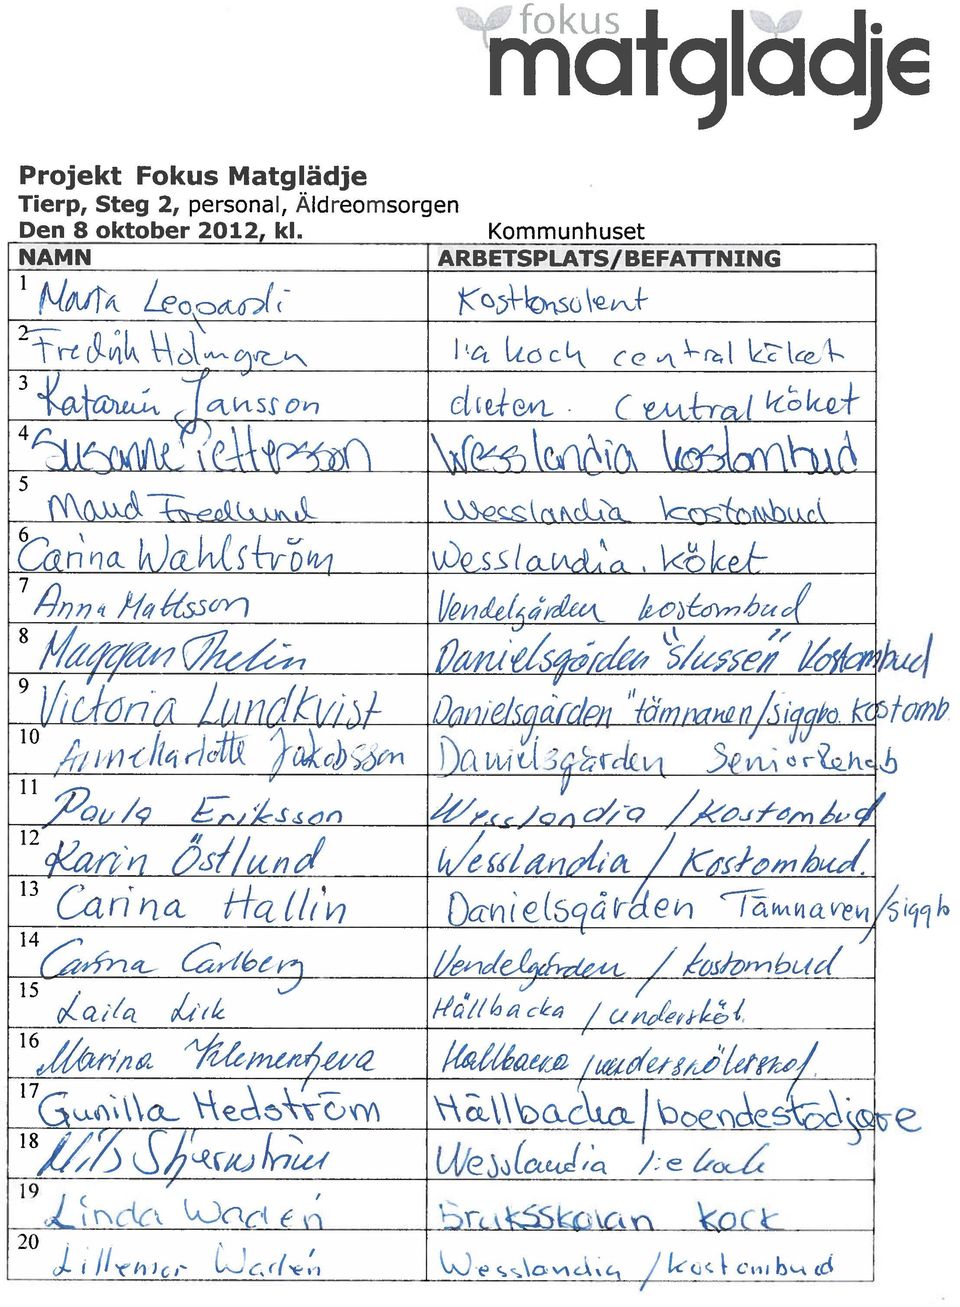 fokus
matglädje
Projekt Fokus Matglädje
Tierp, Steg 2, personal, Äldreomsorgen
Den 8 oktober 2012, kl. Kommunhuset
NAMN ARBETSPLATS/BEFATTNING
1 Maria Leopardi Kostkonsulent
2 Fredrik Holmgren 1:a kock centralköket
3 Katarein Jansson dieten. Centralköket
4 Susanne Pettersson Wesslandia kostombud
5 Maud Fredlund Wesslandia kostombud
6 Carina Wahlström Wesslandia. köket
7 Anna Mattsson Vendelgården kostombud
8 Maggan Thelin Danielsgården "slussen" Kostombud
9 Victoria Lundkvist Danielsgården "tämnaren/siggbo. kostomb
10 Annecharlotte Jakobsson Danielsgården SeniorRehab
11 Paula Eriksson Wesslandia / Kostombud
12 Karin Östlund Wesslandia / Kostombud.
13 Carina Hallin Danielsgården Tämnaren/siggbo
14 Carina Carlberg Vendelgården / kostombud
15 Laila Hällbacka / undersköt.
16 Marina Klementjeva Hällbacka / undersköterska.
17 Gunilla Hedström Hällbacka / boendestödjare
18 Nils Stjernström Wesslandia 1:e kock
19 Linda Wadén Bruksskolan kock
20 Lillemor Wadén Wesslandia / kostombud